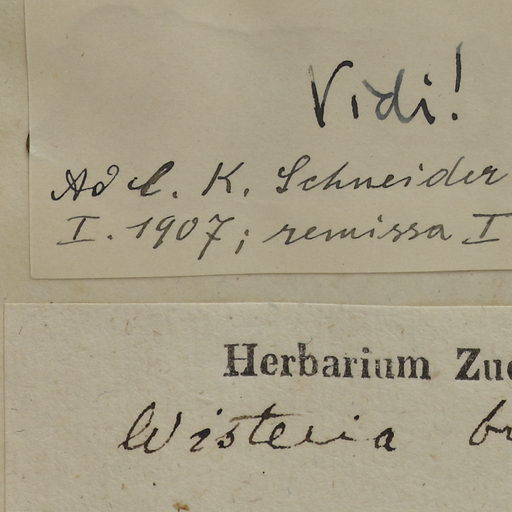 Vidi!
Ad C. K. Schneider
I. 1907; remissa I
Herbarium Zuc
Wisteria br